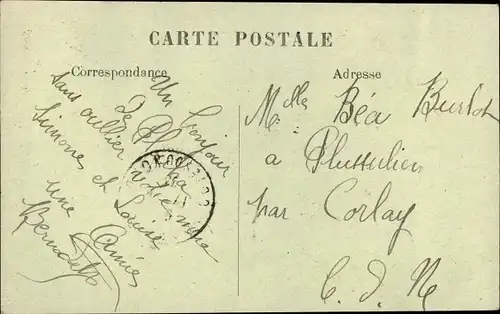 CARTE POSTALE
Correspondance
Adresse
Un bonjour
de
sans oublier votre mère
Simone et Louise
une Amie
Bernadette
Melle Béa Burlot
a Plussulien
par Corlay
C. d. N